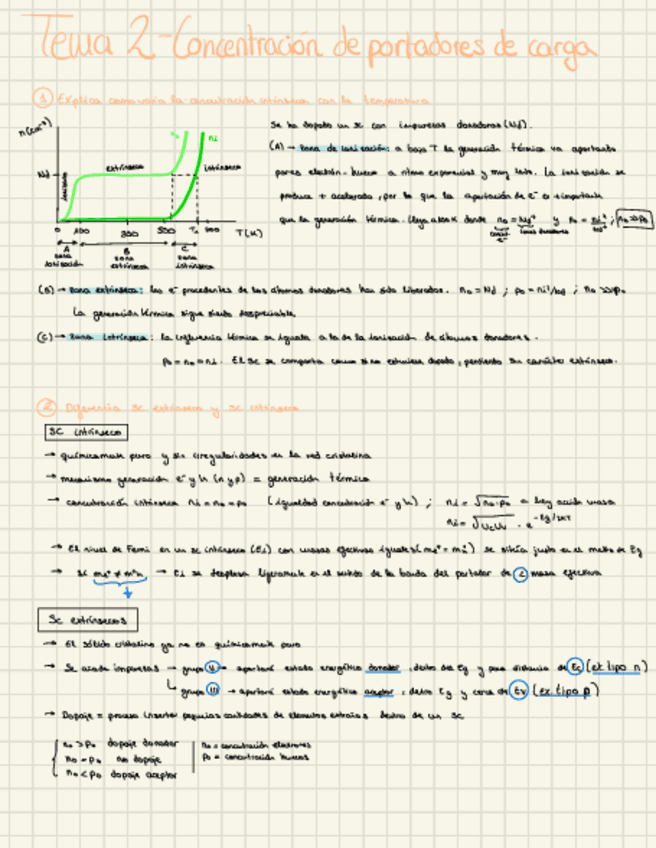 Tema 2 - Concentración de portadores de carga
① Explica como varía la concentración intrínseca con la temperatura
n(cm⁻³)
ni
Nd
extrínseca
intrínseca
0 100 300 500 T(K)
A zona ionización
B zona extrínseca
C zona intrínseca
Se ha dopado un sc con impurezas donadoras (Nd).
(A) → Zona de ionización: a baja T la generación térmica va aportando
pares electrón-hueco a ritmo exponencial y muy lento. La ionización se
produce + acelerada, por lo que la aportación de e⁻ es + importante
que la generación térmica.
(B) → Zona extrínseca: los e⁻ procedentes de los átomos donadores han sido liberados. no = Nd ; po = ni²/Nd ; no >> po.
La generación térmica sigue siendo despreciable.
(C) → Zona intrínseca: la influencia térmica se iguala a la de la ionización de átomos donadores.
po = no = ni. El sc se comporta como si no estuviera dopado, perdiendo su carácter extrínseco.
② Diferencia sc extrínseco y sc intrínseco
SC intrínseco
→ químicamente puro y sin irregularidades en la red cristalina
→ mecanismo generación e⁻ y h (n y p) = generación térmica
→ concentración intrínseca ni = no = po (igualdad concentración e⁻ y h) ; ni = √no·po = ley acción masa
ni = √NcNv · e^-Eg/2KT
→ El nivel de Fermi en un sc intrínseco (Ei) con masas efectivas iguales se sitúa justo en el medio de Eg
→ Ei se desplaza ligeramente en el sentido de la banda del portador de < masa efectiva
Sc extrínsecos
→ El sólido cristalino ya no es químicamente puro
→ Se añade impurezas → grupo V → aportará estado energético donador, dentro de Eg y poca distancia de Ec (ext tipo n)
grupo III → aportará estado energético aceptor, dentro Eg y cerca de Ev (ex. tipo p)
→ Dopaje = proceso insertar pequeñas cantidades de elementos extraños dentro de un sc
no > po dopaje donador
no = po no dopaje
no < po dopaje aceptor
no = concentración electrones
po = concentración huecos